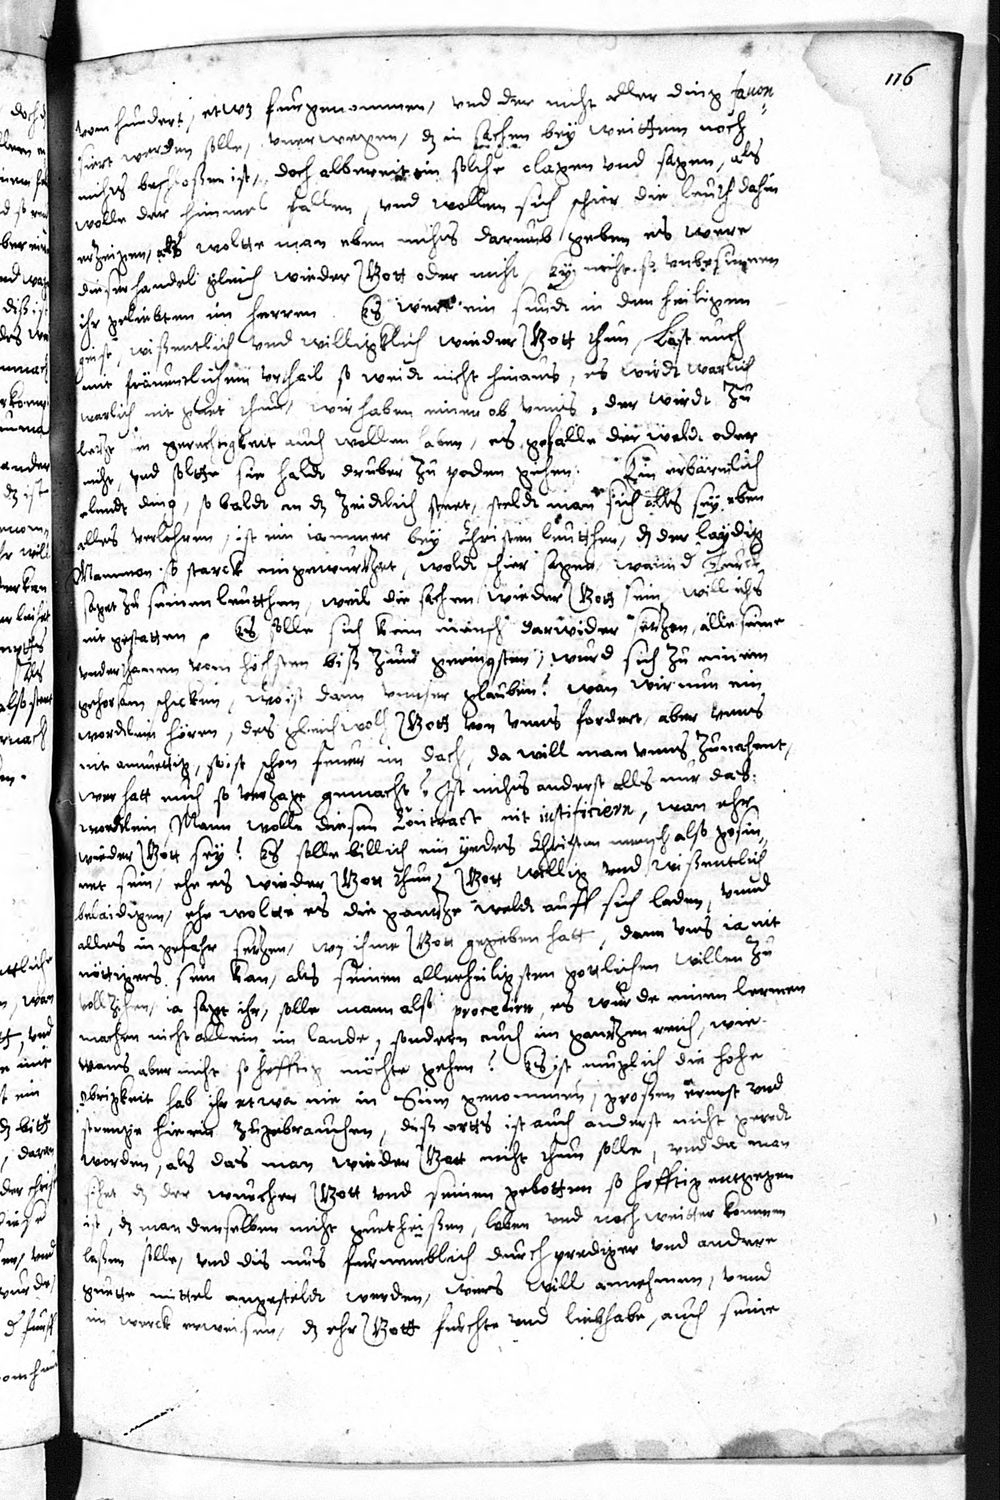 116
vom hundert, etwz fuergenommen, vnd der nicht aller ding favon-
siert werden solle, vnerwegen, dz in sachen bey weittem noch
nichts beschloßen ist, doch albereit ein solche clagen vnd sagen, als
wolle der himmel fallen, vnd wollen sich schier die leuth dahin
erzeigen, als woltte man eben nichts darumb geben es were
dieser handel gleich wieder Gott oder nicht, Ey nicht so vnbesunnen
ihr geliebten im herren. Es were ein sündt in den heiligen
geist, wißentlich vnd willigklich wieder Gott thun, Last euch
mit freundlichem vrthail so weidt nicht hinaus, es wirdt warlich
warlich nit guet thun, wir haben einen ob vnns, der wirdt zu
letst ein gerechtigkeit auch wollen haben, es gefalle der weldt oder
nicht, vnd soltte sie haldt druber zu poden gehen. Ein erbärmlich
elendt ding, so baldt an dz Zeidtlich steet, steldt man sich alls sey eben
alles verlohren, ist ein iammer bey Christen leutthen, dz der laydig
Mammon so starck eingewurtzet, woldt hier sagen, wann d Teurck
saget zu seinen leutthen, weil die sachen wieder Gott sein, will ichs
nit gestatten. Es solle sich kein mensch darwider setzen, alle seine
vnderthanen vom höchsten biß zum geringsten, wurd sich zu einem
gehorsam schicken, wo ist dann vnnser glauben? wan wir nun ein
wordtlein hören, des gleichwoll Gott von vnns fordert, aber vnns
nit anmuettig, so ist schon feuer im dach, da will man vnns zunahent,
wer hatt euch so verzagt gemacht? Ist nichts anderst alls nur das
wordtlein Mann wolle diesen Contract nit iustificiern, wan ehr
wieder Gott sey? Es solle billich ein yedes Christen mensch also gesin-
net sein, ehe es wieder Gott thun, Gott willig vnd wißentlich
belaidigen, ehe woltte es die gantze weldt auff sich laden, vnnd
alles in gefahr setzen, wz ihme Gott gegeben hatt, dann vns ia nit
nöttigers sein kan, als seinen allerheiligsten gottlichen willen zu
vollziehen, ia sagt ihr, solle mann also procedirn, es wurde einen lermen
machen nicht allein im lande, sondern auch im gantzen reich, wie
wans aber nicht so hefftig möchte gehen? Es ist muglich die hohe
obrigkeit hab ihr etwa nie in Sinn genommen, großen ernst vnd
strenge hierin zugebrauchen, diß ortts ist auch anderst nicht geredt
worden, als das man wieder Gott nicht thun solle, vnd da man
sihet dz der wucher Gott vnd seinen gebotten so hefftig entgegen
ist, dz man denselben nicht guetheißen, loben vnd noch weitter kommen
laßen solle, vnd dis mus furnemblich durch prediger vnd andere
guette mittel angesteldt werden, wers will annehmen, vnnd
im werck erweisen, dz ehr Gott fürchte vnd liebhabe, auch seine